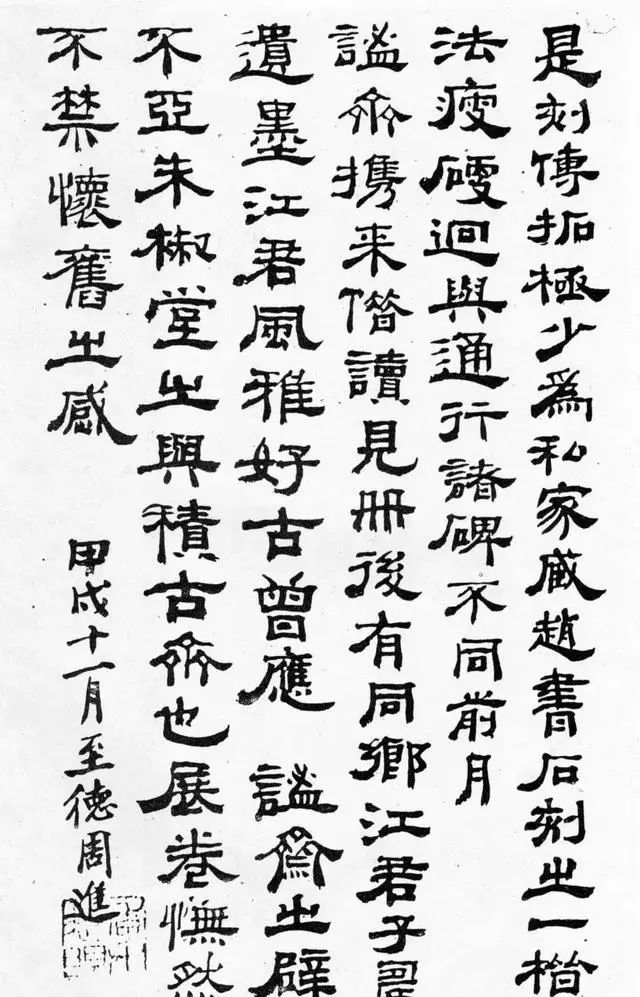 是刻傳拓極少爲私家臧趙書石刻之一楷
法瘦硬迥與通行諸碑不同前月
謐齋携来借讀見冊後有同鄉江君子
遺墨江君風雅好古曾應 謐齋之辟
不亞朱椒堂之與積古齋也展卷憮然
不禁懷舊之感
甲戌十一月至德周進